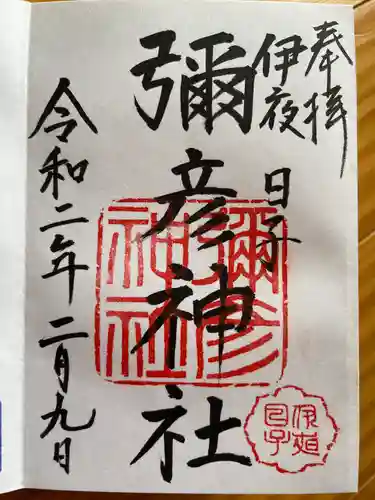 奉拝
伊夜日子
彌彦神社
令和二年二月九日
彌彦神社